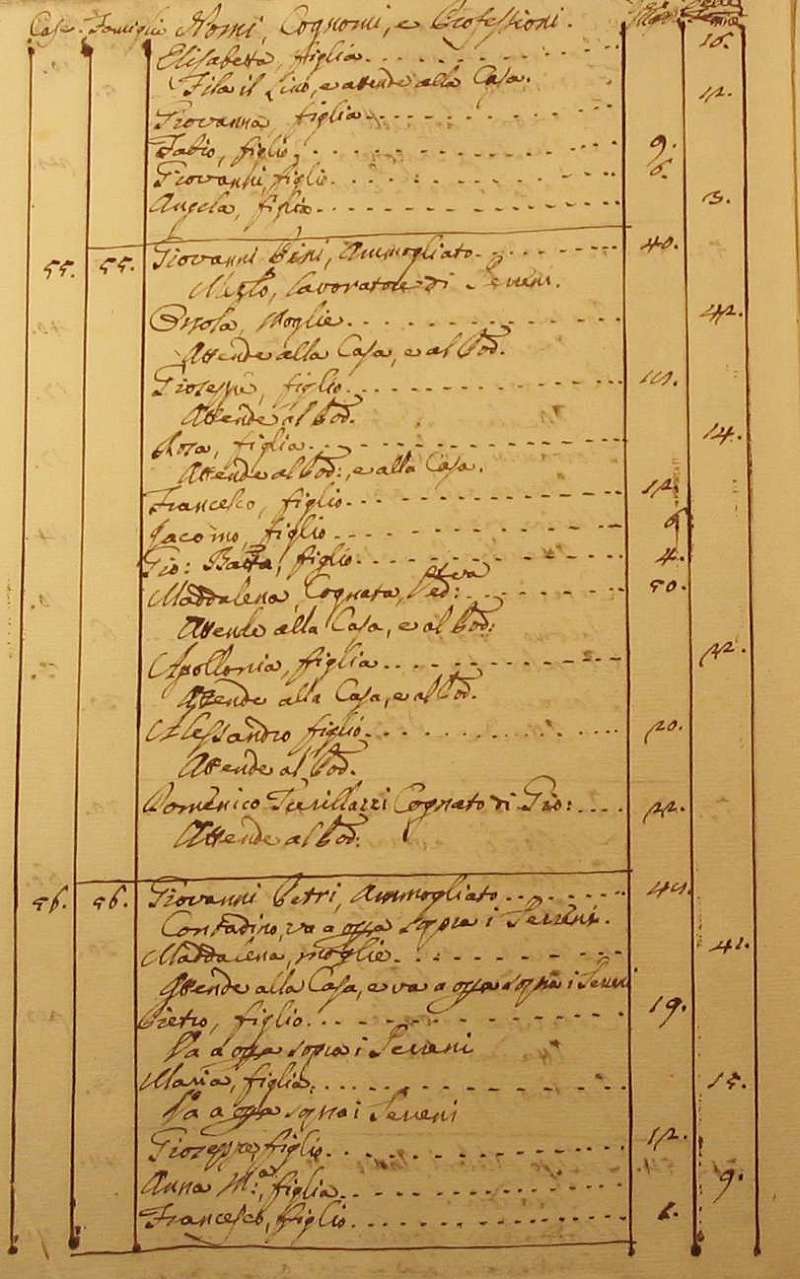 Case. Famiglie Nomi, Cognomi, e Professioni.
Elisabetta, figlia 16.
Fila il Lino, e attende alla Casa.
Giovanna figlia 12.
Fabio, figlio 9.
Giovanni, figlio 6.
Angela, figlia 3.
55. 55. Giovanni Pini, Ammogliato 40.
Mezlo, lavoratore di Terreni.
Orsola, Moglie 42.
Attende alla Casa, e al Pod.
Gioseppe, figlio
Attende al Pod.
Rosa, figlia 14.
Attende al Pod:, e alla Casa.
Francesco, figlio 12.
Jacomo, figlio 6
Gio: Batta, figlio 4.
Maddalena, Cognata, Ved:va 50.
Attende alla Casa, e al Pod:
Apollonia, figlia 22.
Attende alla Casa, e al Pod.
Alessandro figlio 20.
Attende al Pod.
Domenico Turillazzi Cognato di Gio: 22.
Attende al Pod:
56. 56. Giovanni Petri, Ammogliato
Contadino, va a opra sopra i Terreni.
Maddalena, moglie 41.
Attende alla Casa, e va a opra sopra i Terreni
Pietro, figlio 19.
Va a opra sopra i Terreni
Maria, figlia 15.
Va a opra sopra i Terreni
Gioseppe, figlio 12.
Anna M:a, figlia 9.
Francesco, figlio